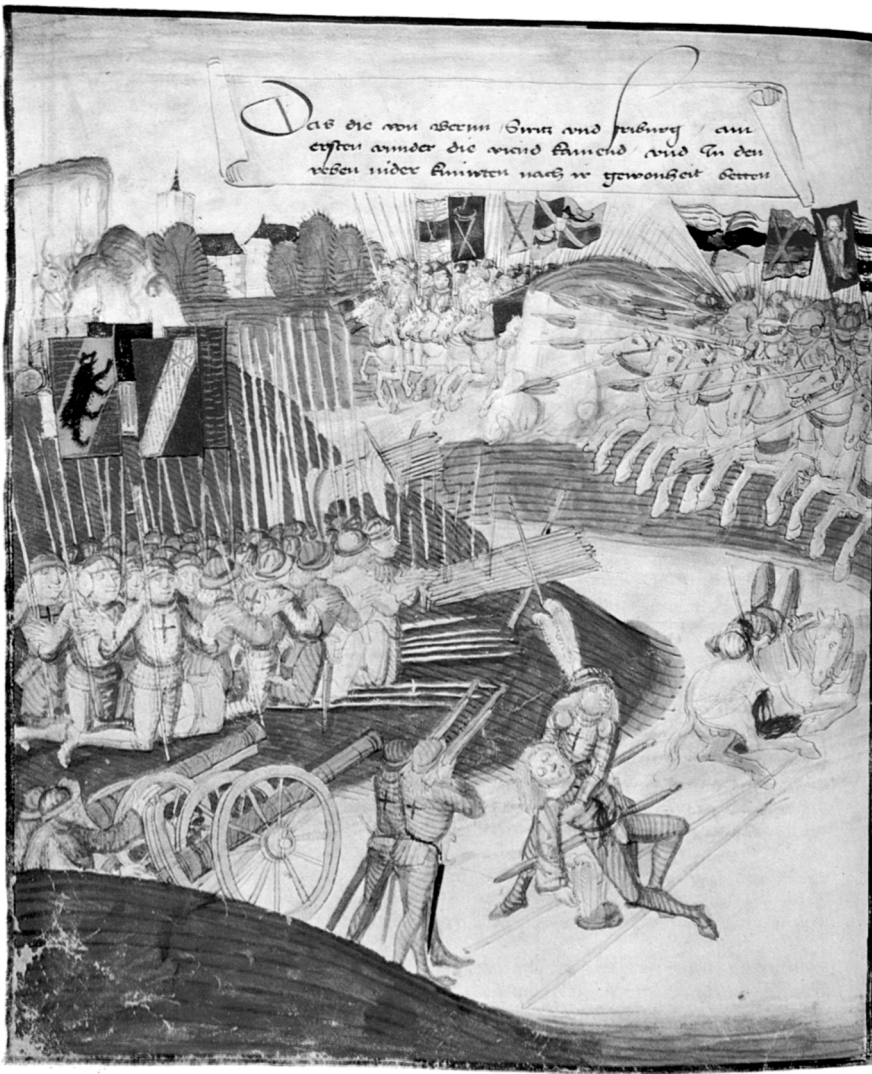 Das die von Bernn Switz und friburg / am
ersten wunder die viend kamend / und In den
reben nider knüwten nach ir gewonheit betten